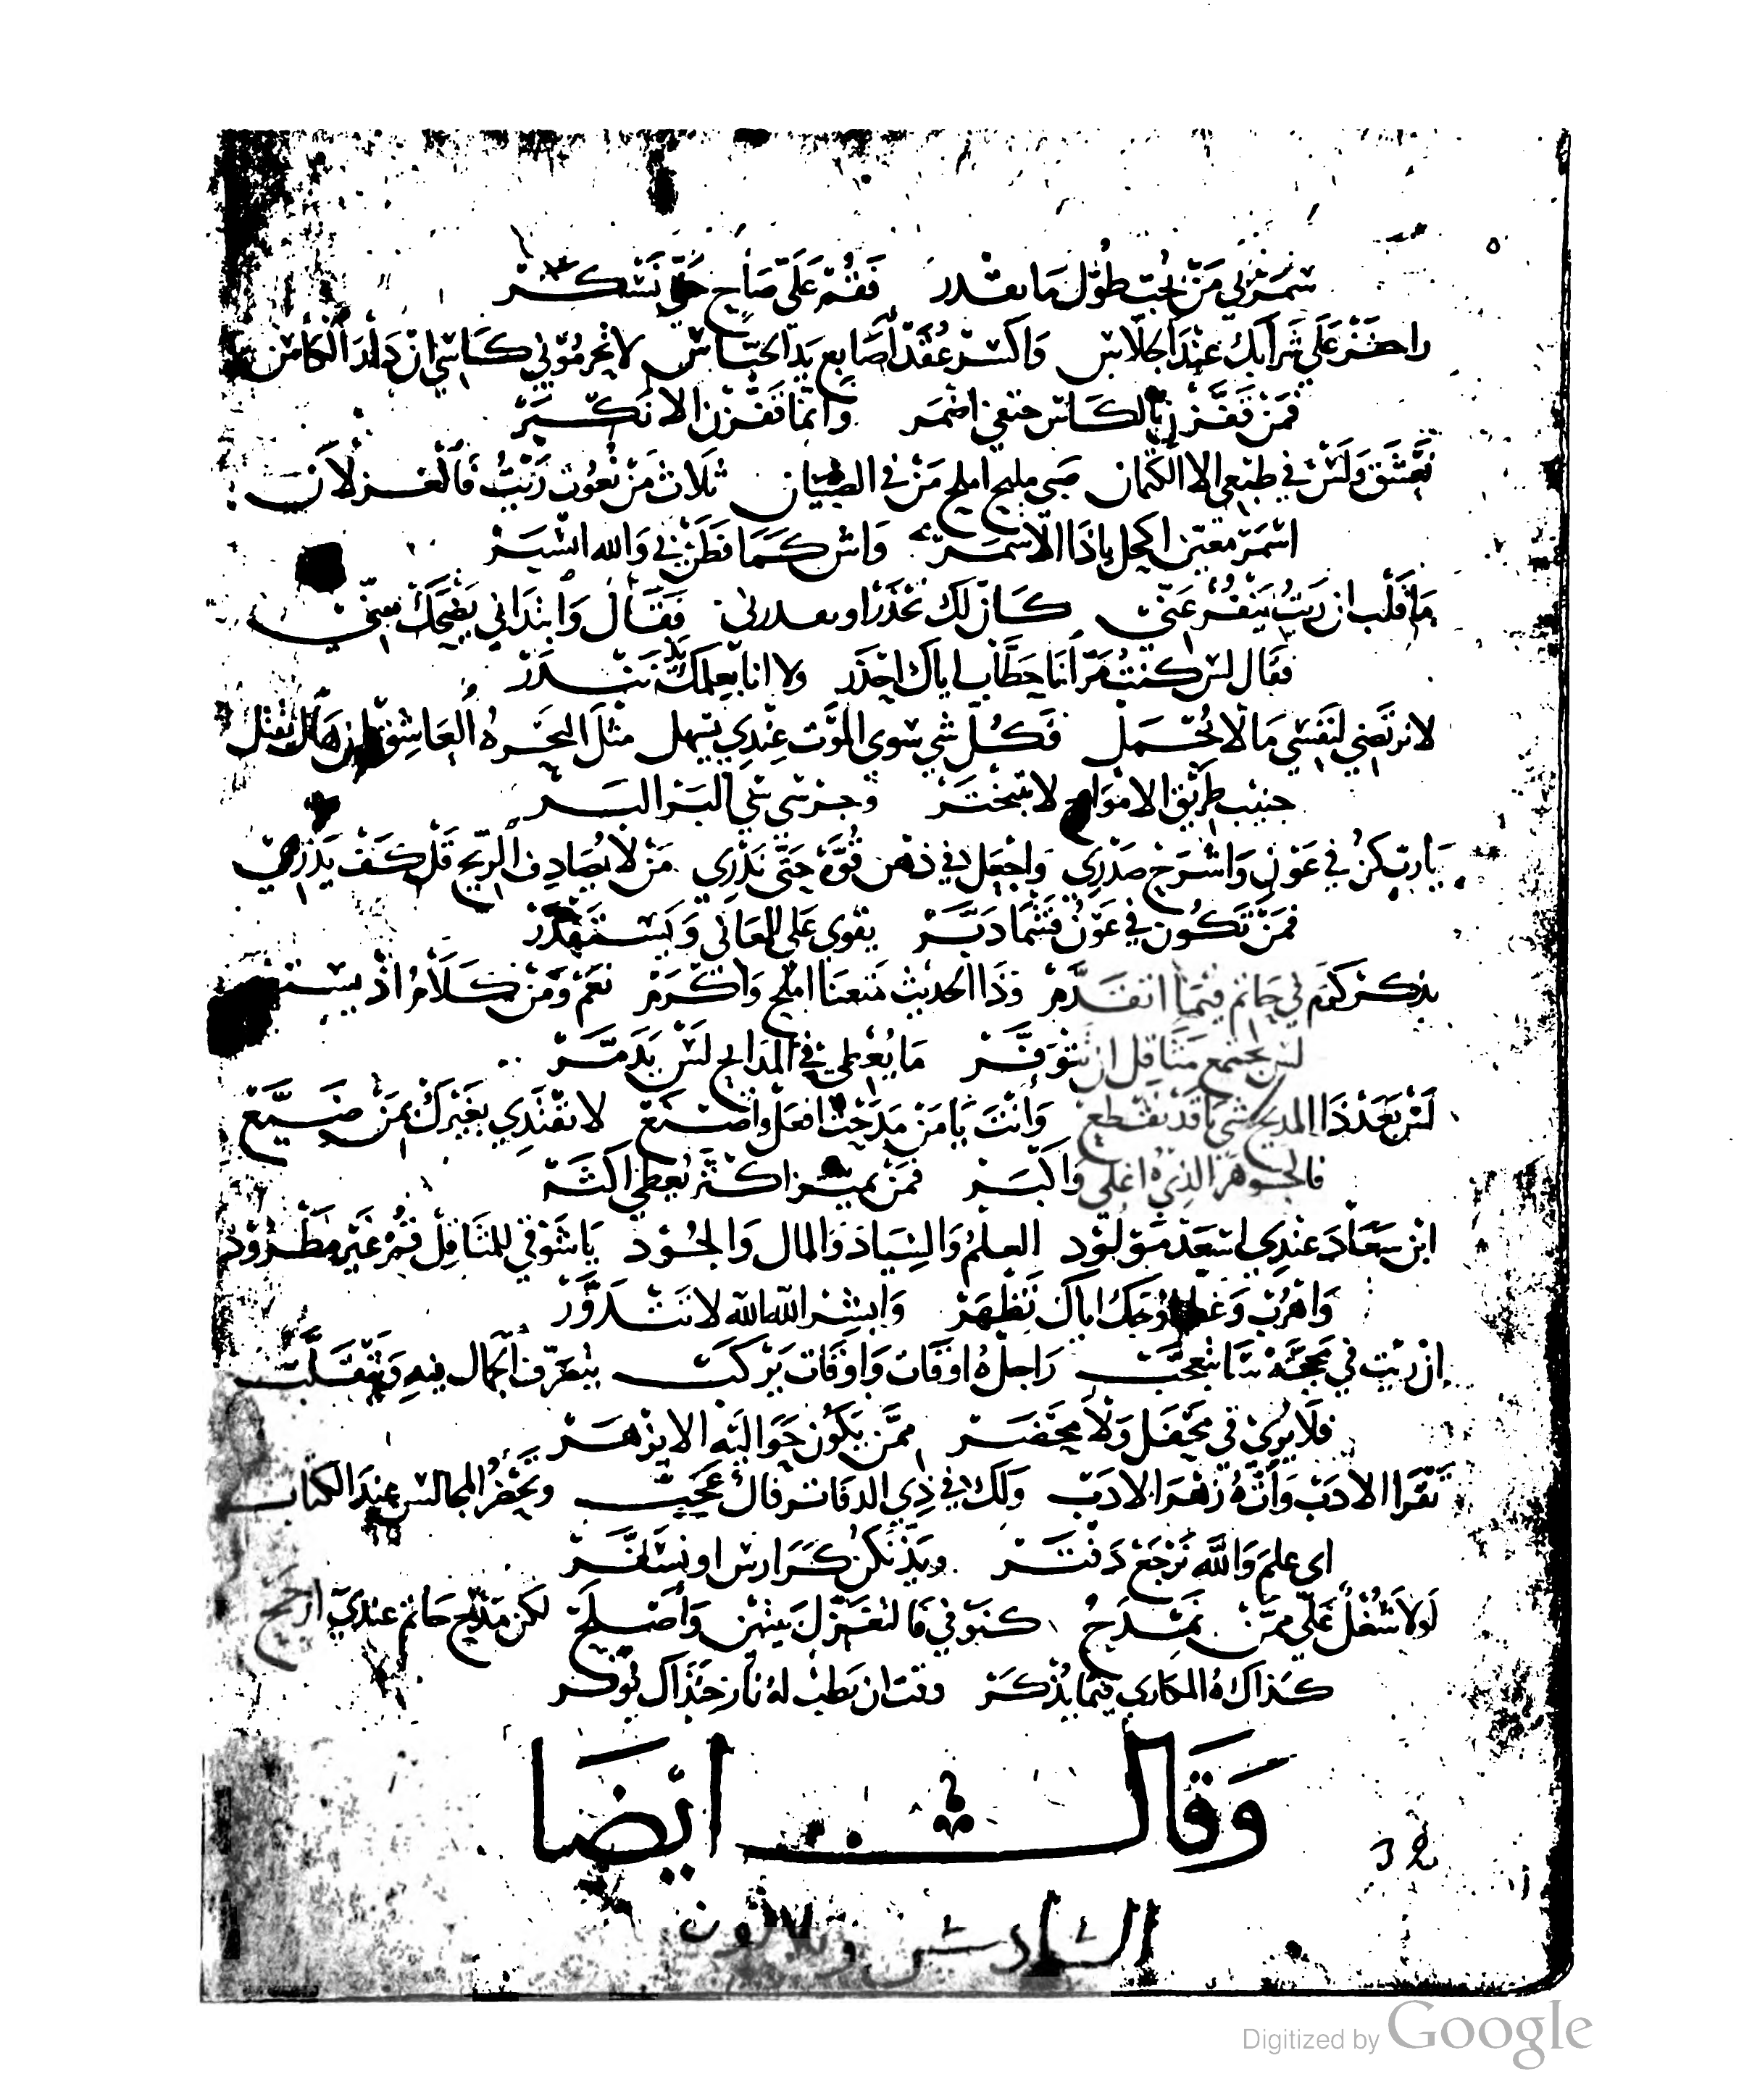 سمرني من نحب طول ما نقدر فقم على صاح حتى نسكر
راحضر على شرابك عند الجلاس واكسر عقد أصابع يد الحباس لا تحرموني كاسي ان دار الكاس
فمن نقز بالكاس حنقي اضمر وانما نقزن الا نكبر
نعشق ولس في طبعي الا الكتمان صبي مليح املح من في الصبيان ثلاث من نعوت ريت فالغزلان
اسمر معين اكحل ياذا الاسمر واش كما فطن بي والله انشبر
ما قلب ان ريت ينفر عني كان لك تحذر او فقال وابتداني يضحك مني
فقال لس كنت مر أنا حطاب اياك احذر ولا انا بعملك نندر
لا نرتضي لنفسي ما لا تحمل فكل شي سوى الموت عندي يسهل مثل البحر هُ العاشق يقتل
جنيب طريق الامواج لا تبختر وجز شي شي البر البر
يارب كن في عون واشرح صدري واجعل في ذهن قوة حتى ندري من لا يصادف الريح قل كف يذري
فمن تكون في عون فثما دبر يقوى على المعاني ويستمهر
بذكر كوم في حاتم فيما اتقدم وذا الحديث متعنا املح واكرم نعم ومن كلام اذ
لس يجتمع متاقل ان توفر ما يعطي في المدايح لس يدمر
لس بعد ذا المديح شيا قد نقطع وانت يا من مدحت افعل واصنع لا تقتدي بغيرك من ضيع
فالجوهر الذي هُ اعلى واكبر فمن يميز اكثر يعطي اكثر
ابن سعاد عندي اسعد مولود العلم والسياد والمال والجود يا شوقي للمتاقل قم غير مطرود
واهرب وغط وجهك اياك تظهر وابشر الله الله لا تندور
ان ريت في محجه سا بتعجب راجل هُ اوقات واوقات يركب بتعرف الجمال فيه وتتقلب
فلا يرى في محفل ولا محضر ممن يكون حواليه الا يزهر
تقرا الادب وانه زهر الادب ولك في ذي الدفاتر فال عجيب وتحضر المجالس عند الكتاب
اي علم والله ترجع دفتر ويذنكن كرارس او نسافر
لولا شغل علي ممن نمدح كنوفي فالتغزل بينهن واصلح لكن مديح حاتم عندي ارجح
كذاك هُ المكاري فيما يذكر وقت ان يطب له نار حذاك نوكر
وقالـ ايضا
32
السادس وثلاثون
Digitized by Google